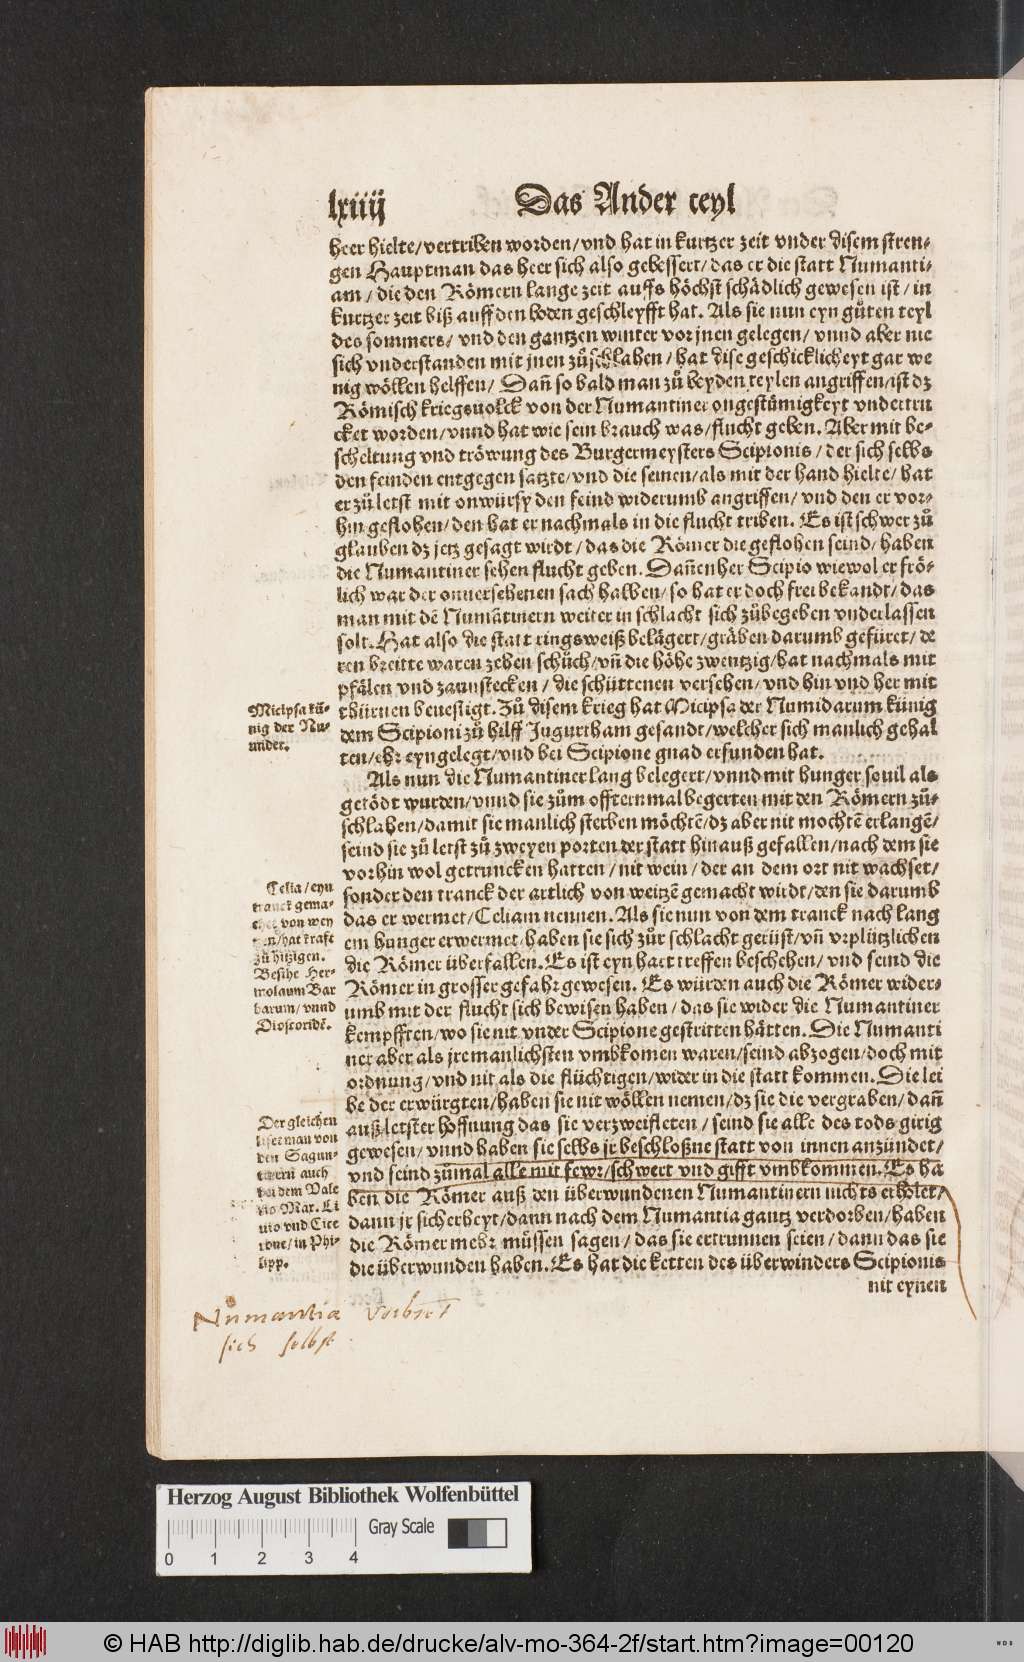 lxiiij
Das Ander teyl
heer hielte/vertriben worden/vnd hat in kurtzer zeit vnder disem stren-
gen Hauptman das heer sich also gebessert/das er die statt Numanti-
am/die den Römern lange zeit auffs höchst schädlich gewesen ist/in
kurtzer zeit biß auff den boden geschleyfft hat. Als sie nun eyn gůten teyl
des sommers/vnd den gantzen winter vor jnen gelegen/vnnd aber nie
sich vnderstanden mit jnen zůschlahen/hat dise geschicklicheyt gar we
nig wöllen helffen/Dañ so bald man zů beyden teylen angriffen/ist dz
Römisch kriegsuolck von der Numantiner ongestůmigkeyt vndertru
cket worden/vnnd hat wie sein brauch was/flucht geben. Aber mit be-
scheltung vnd tröwung des Burgermeysters Scipionis/der sich selbs
den feinden entgegen satzte/vnd die seinen/als mit der hand hielte/hat
er zů letst mit onwürsy den feind widerumb angriffen/vnd den er vor-
hin geflohen/den hat er nachmals in die flucht triben. Es ist schwer zů
glauben dz jetz gesagt wirdt/das die Römer die geflohen seind/haben
die Numantiner sehen flucht geben. Dañenher Scipio wiewol er frö-
lich war der onuersehenen sach halben/so hat er doch frei bekandt/das
man mit dē Numātinern weiter in schlacht sich zůbegeben vnderlassen
solt. Hat also die statt ringsweiß belägert/gräben darumb gefüret/de
ren breitte waren zehen schůch/vñ die höhe zwentzig/hat nachmals mit
pfälen vnd zaunstecken/die schüttenen versehen/vnd hin vnd her mit
thürnen beuestigt. Zů disem krieg hat Micipsa der Numidarum künig
dem Scipioni zů hilff Jugurtham gesandt/welcher sich manlich gehal
ten/ehr eyngelegt/vnd bei Scipione gnad erfunden hat.
Micipsa kü-
nig der Nu-
mider.
Als nun die Numantiner lang belegert/vnnd mit hunger souil als
getödt wurden/vnnd sie zům offternmal begerten mit den Römern zů-
schlahen/damit sie manlich sterben möchtē/dz aber nit mochtē erlangē/
seind sie zů letst zů zweyen porten der statt hinauß gefallen/nach dem sie
vorhin wol getruncken hatten/nit wein/der an dem ort nit wachset/
sonder den tranck der artlich von weitzē gemacht wirdt/den sie darumb
das er wermet/Celiam nennen. Als sie nun von dem tranck nach lang
em hunger erwermet/haben sie sich zůr schlacht gerüst/vñ vrplützlichen
die Römer überfallen. Es ist eyn hart treffen beschehen/vnd seind die
Römer in grosser gefahr gewesen. Es würden auch die Römer wider-
umb mit der flucht sich bewisen haben/das sie wider die Numantiner
kempfften/wo sie nit vnder Scipione gestritten hätten. Die Numanti
ner aber als jre manlichsten vmbkomen waren/seind abzogen/doch mit
ordnung/vnd nit als die flüchtigen/wider in die statt kommen. Die lei
be der erwürgten/haben sie nit wöllen nemen/dz sie die vergraben/dañ
auß letster hoffnung das sie verzweifleten/seind sie alle des tods girig
gewesen/vnnd haben sie selbs jr beschloßne statt von innen anzündet/
vnd seind zůmal alle mit fewr/schwert vnd gifft vmbkommen. Es ha
ben die Römer auß den überwundenen Numantinern nichts erholet/
dann jr sicherheyt/dann nach dem Numantia gantz verdorben/haben
die Römer mehr müssen sagen/das sie ertrunnen seien/dann das sie
die überwunden haben. Es hat die ketten des überwinders Scipionis
nit eynen
Celia/eyn
tranck gema-
chet von wey
tzen/hat krafft
zů hitzigen.
Besihe Her-
molaum Bar
barum/vnnd
Dioscoridē.
Der gleichen
liset man von
den Sagun-
tinern auch
bei dem Vale
rio Mar. Li
uio vnd Cice
rone/in Phi-
lipp.
Nůmantia verbrēt
sich selbst
Herzog August Bibliothek Wolfenbüttel
Gray Scale
0 1 2 3 4
© HAB http://diglib.hab.de/drucke/alv-mo-364-2f/start.htm?image=00120